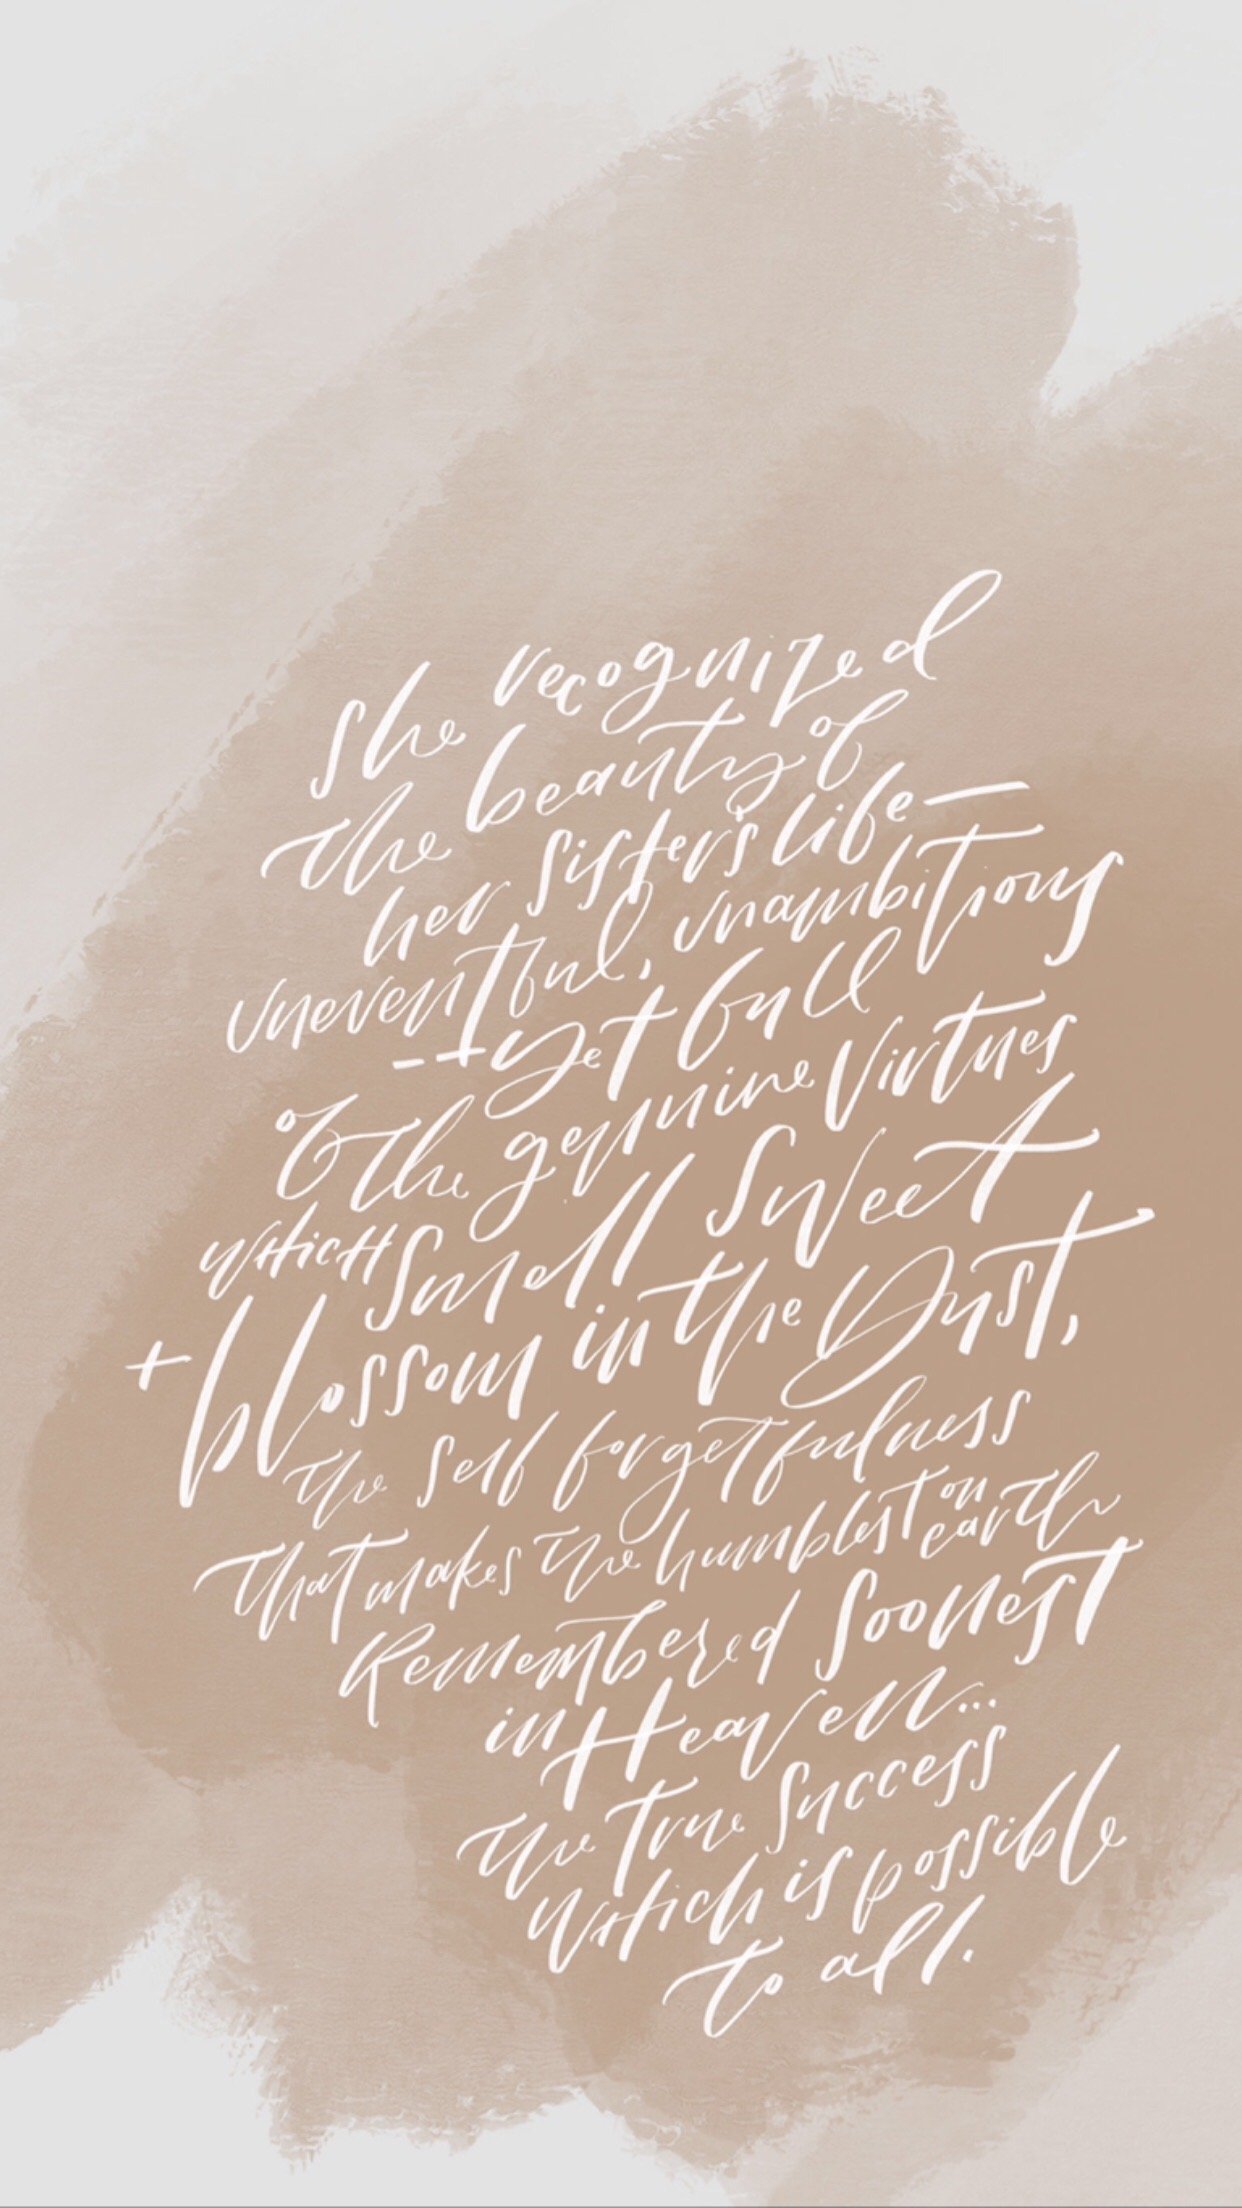 She recognized
the beauty of
her sister's life—
uneventful, unambitious
--yet full
of the genuine virtues
which smell sweet
+ blossom in the Dust,
the self forgetfulness
that makes the humblest on earth
Remembered soonest
in Heaven...
the true success
which is possible
to all.